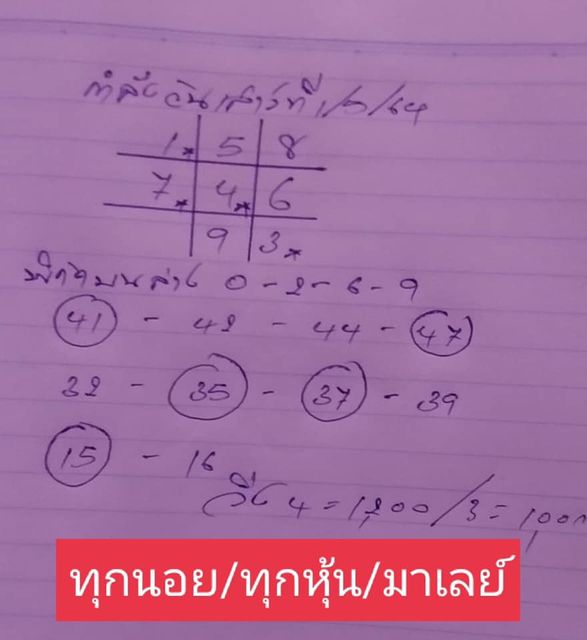 กำลังวันเสาร์ที่ 1/5/64
1* 5 8
7* 4* 6
9 3*
บนล่าง 0 - 2 - 6 - 9
41 - 42 - 44 - 47
32 - 35 - 37 - 39
15 - 16
วิ่ง 4 = 1,200 / 3 =
ทุกนอย/ทุกหุ้น/มาเลย์